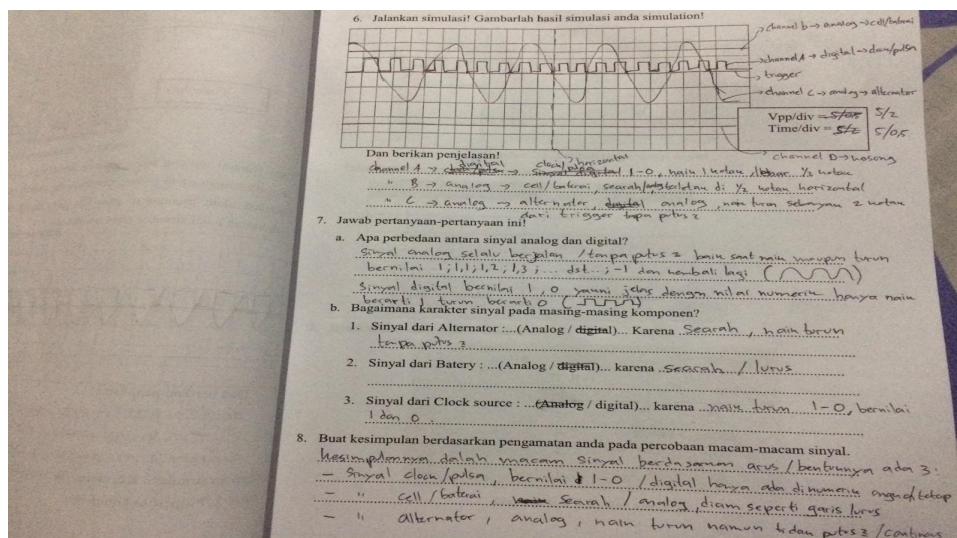 6. Jalankan simulasi! Gambarlah hasil simulasi anda simulation!
channel b → analog → cell/baterai
channel A → digital → clock/pulsa
trigger
channel C → analog → alternator
Vpp/div = 5/0,5 5/2
Time/div = 5/2 5/0,5
channel D → kosong
Dan berikan penjelasan!
channel A → digital clock/pulsa horizontal 1-0, naik 1 kotak, lebar 1/2 kotak
" B → analog → cell/baterai, searah/ di 1/2 kotak horizontal
" C → analog → alternator, digital analog, naik turun sebanyak 2 kotak
dari trigger tanpa putus2
7. Jawab pertanyaan-pertanyaan ini!
a. Apa perbedaan antara sinyal analog dan digital?
Sinyal analog selalu berjalan / tanpa putus2 baik saat naik maupun turun
bernilai 1; 1,1; 1,2; 1,3; ... dst...; -1 dan kembali lagi
Sinyal digital bernilai 1,0 yauni jelas dengan nilai numerik hanya naik
berarti 1 turun berarti 0
b. Bagaimana karakter sinyal pada masing-masing komponen?
1. Sinyal dari Alternator :...(Analog / digital)... Karena Searah, naik turun
tanpa putus2
2. Sinyal dari Batery : ...(Analog / digital)... karena Searah / lurus
3. Sinyal dari Clock source : ...(Analog / digital)... karena naik turun 1-0, bernilai
1 dan 0.
8. Buat kesimpulan berdasarkan pengamatan anda pada percobaan macam-macam sinyal.
Kesimpulannya dalah macam Sinyal berdasarkan arus / bentuknya ada 3:
- Sinyal clock/pulsa, bernilai 1-0 / digital hanya ada dinumerik tetap
- " cell / baterai, Searah / analog, diam seperti garis lurus
- " alternator, analog, naik turun namun tidak putus2 / continous